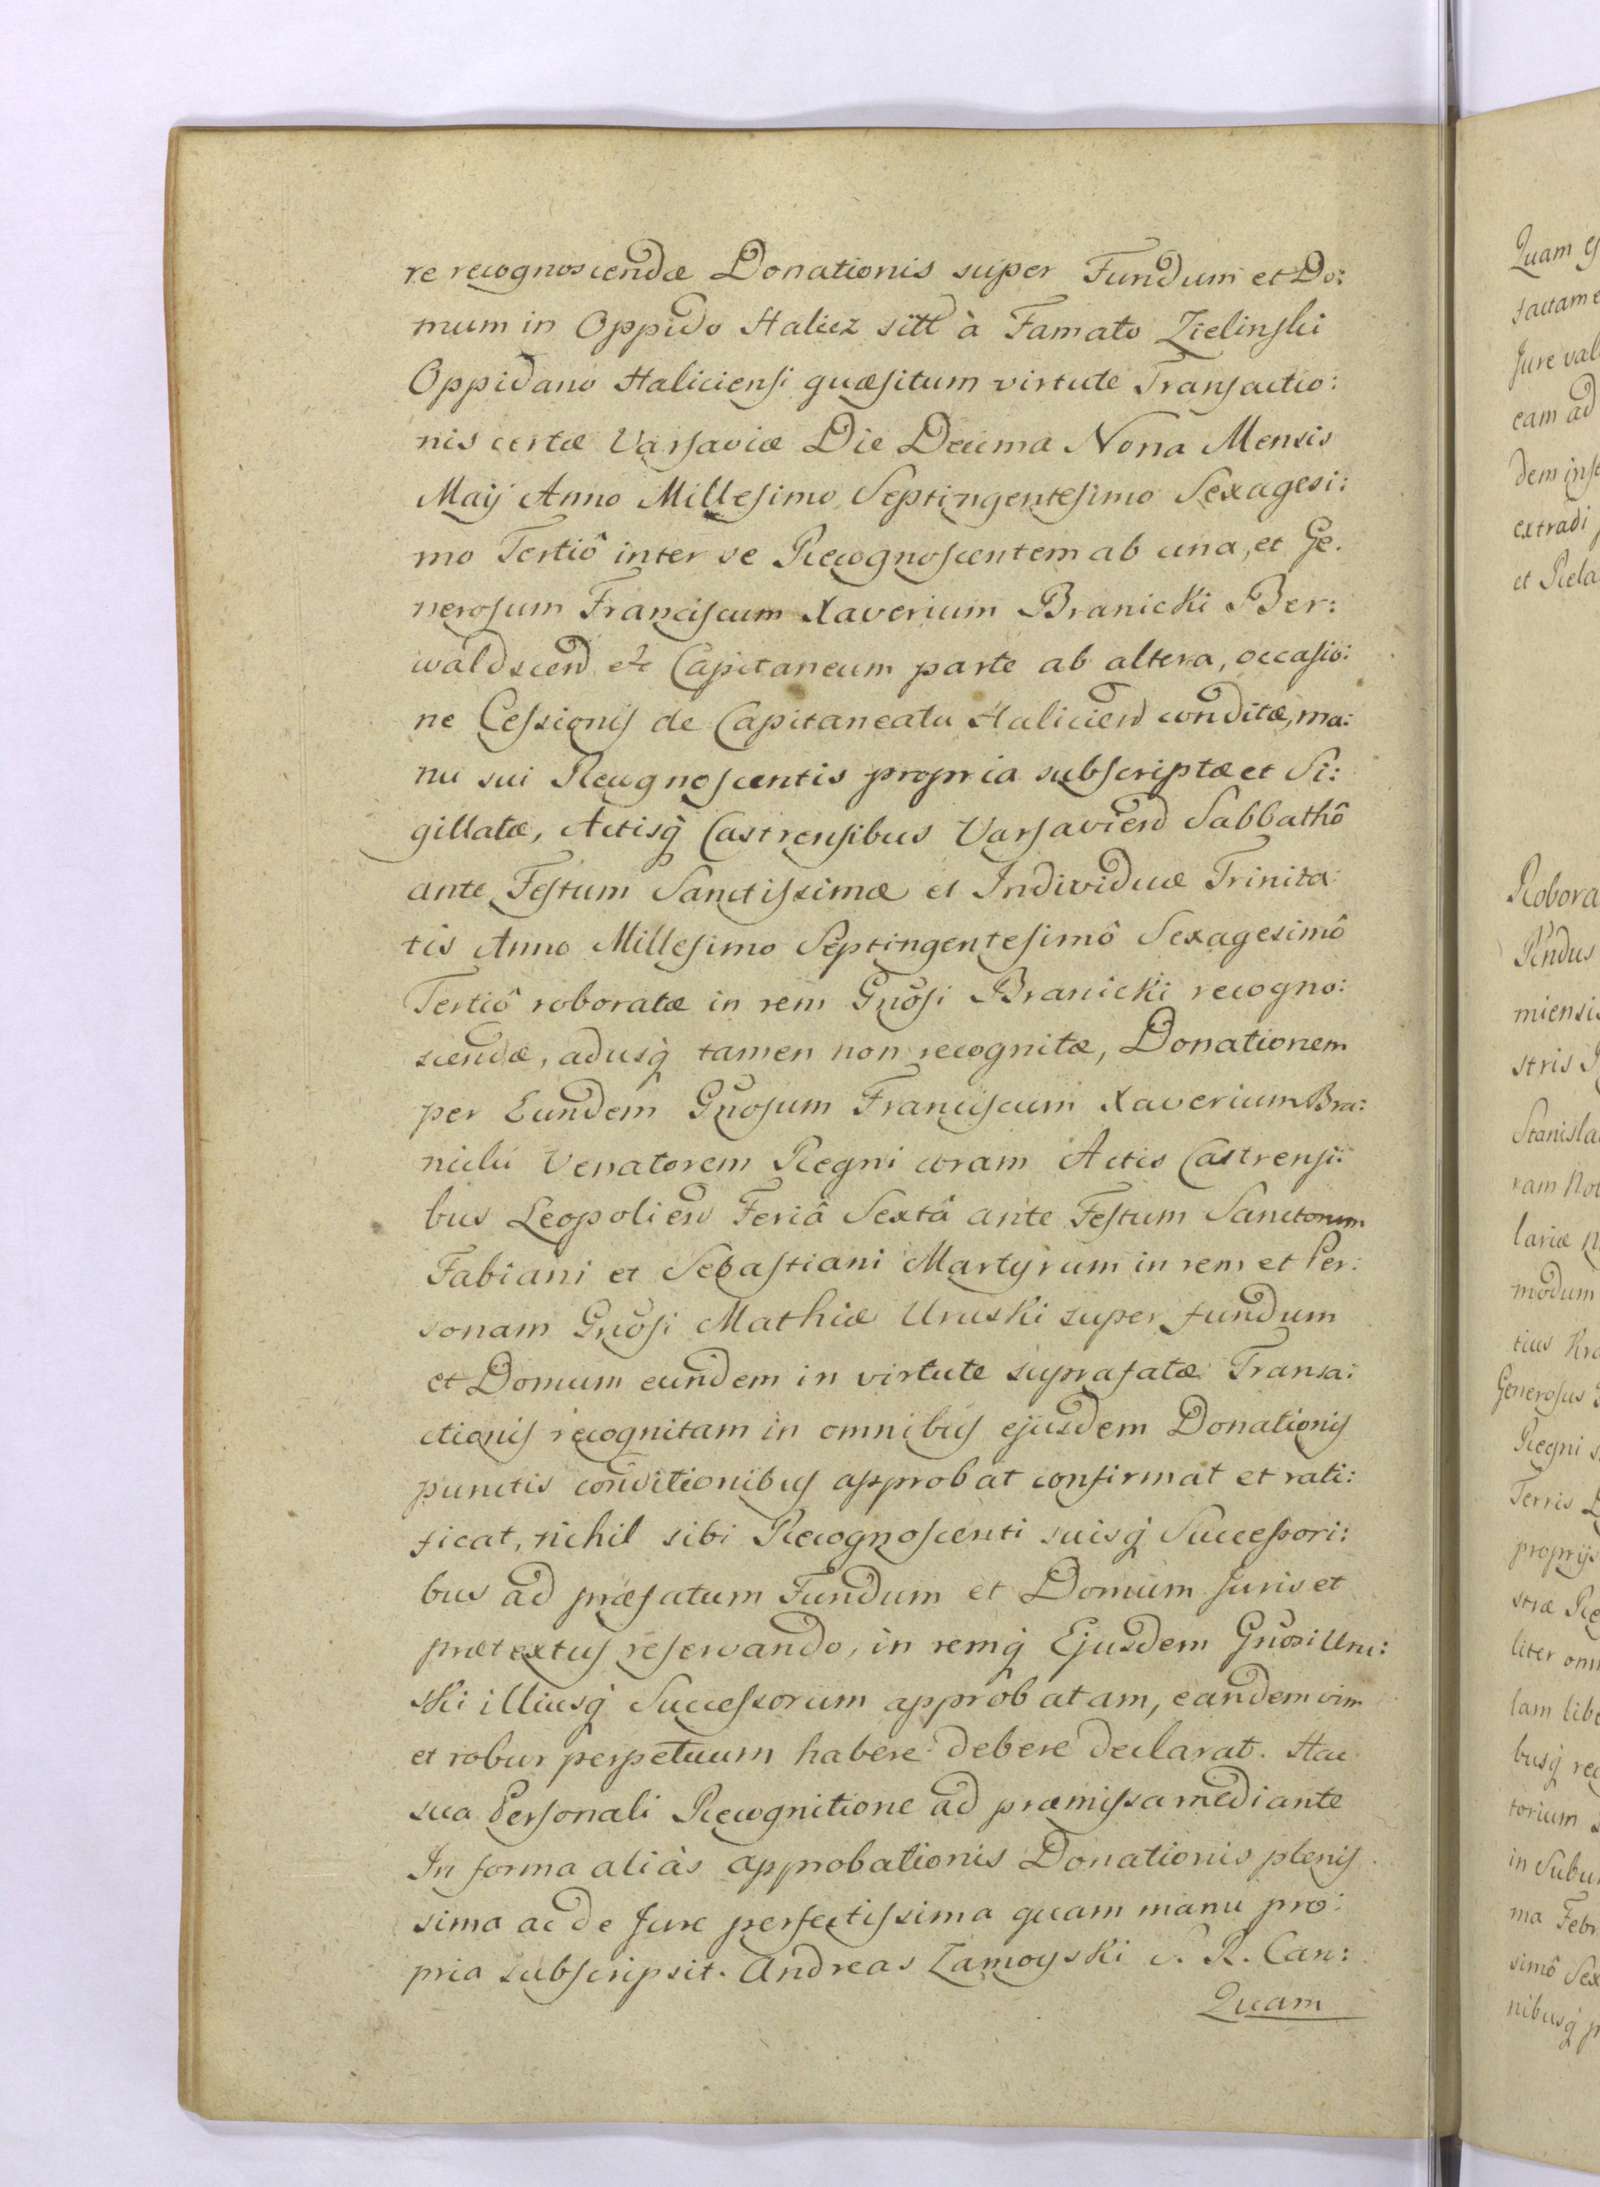 re recognoscendæ Donationis super Fundum et Do:
mum in Oppido Halicz sitt à Famato Zielinski
Oppidano Haliciensi quæsitum virtute Transactio:
nis certæ Varsaviæ Die Decima Nona Mensis
Maij Anno Millesimo Septingentesimo Sexagesi:
mo Tertiô inter se Recognoscentem ab una, et Ge.
nerosum Franciscum Xaverium Branicki Ber:
waldscen etc Capitaneum parte ab altera, occasio:
ne Cessionis de Capitaneatu Halicien conditæ, ma:
nu sui Recognoscentis propria subscriptæ et Si:
gillatæ, Actisq Castrensibus Varsavien Sabbathô
ante Festum Sanctissimæ et Individuæ Trinita:
tis Anno Millesimo Septingentesimô Sexagesimô
Tertiô roboratæ in rem Gnosi Branicki recogno:
scendæ, adusq tamen non recognitæ, Donationem
per Eundem Gnosum Franciscum Xaverium Bra:
nicki Venatorem Regni coram Actis Castrensi:
bus Leopolien Feriâ Sextâ ante Festum Sanctorum
Fabiani et Sebastiani Martyrum in rem et Per:
sonam Gnosi Mathiæ Uruski super fundum
et Domum eundem in virtute suprafatæ Transa:
ctionis recognitam in omnibus ejusdem Donationis
punctis conditionibus approbat confirmat et rati:
ficat, nihil sibi Recognoscenti suisq Successori:
bus ad præfatum Fundum et Domum Juris et
prætextus reservando, in remq Ejusdem Gnosi Uru:
ski illiusq Successorum approbatam, eandem vim
et robur perpetuum habere debere declarat. Hac
sua Personali Recognitione ad præmissa mediante
In forma aliàs approbationis Donationis plenis
sima ac de Jure perfectissima quam manu pro:
pria subscripsit. Andreas Zamoyski S. R. Can:
Quam
Quam
eam ad
extradi
et Rela
Robora
miensis
stris
Stanisla
modum
Generosus
Regni
Terris
torium
in Subur
ma Febr
simô Sex
nibusq